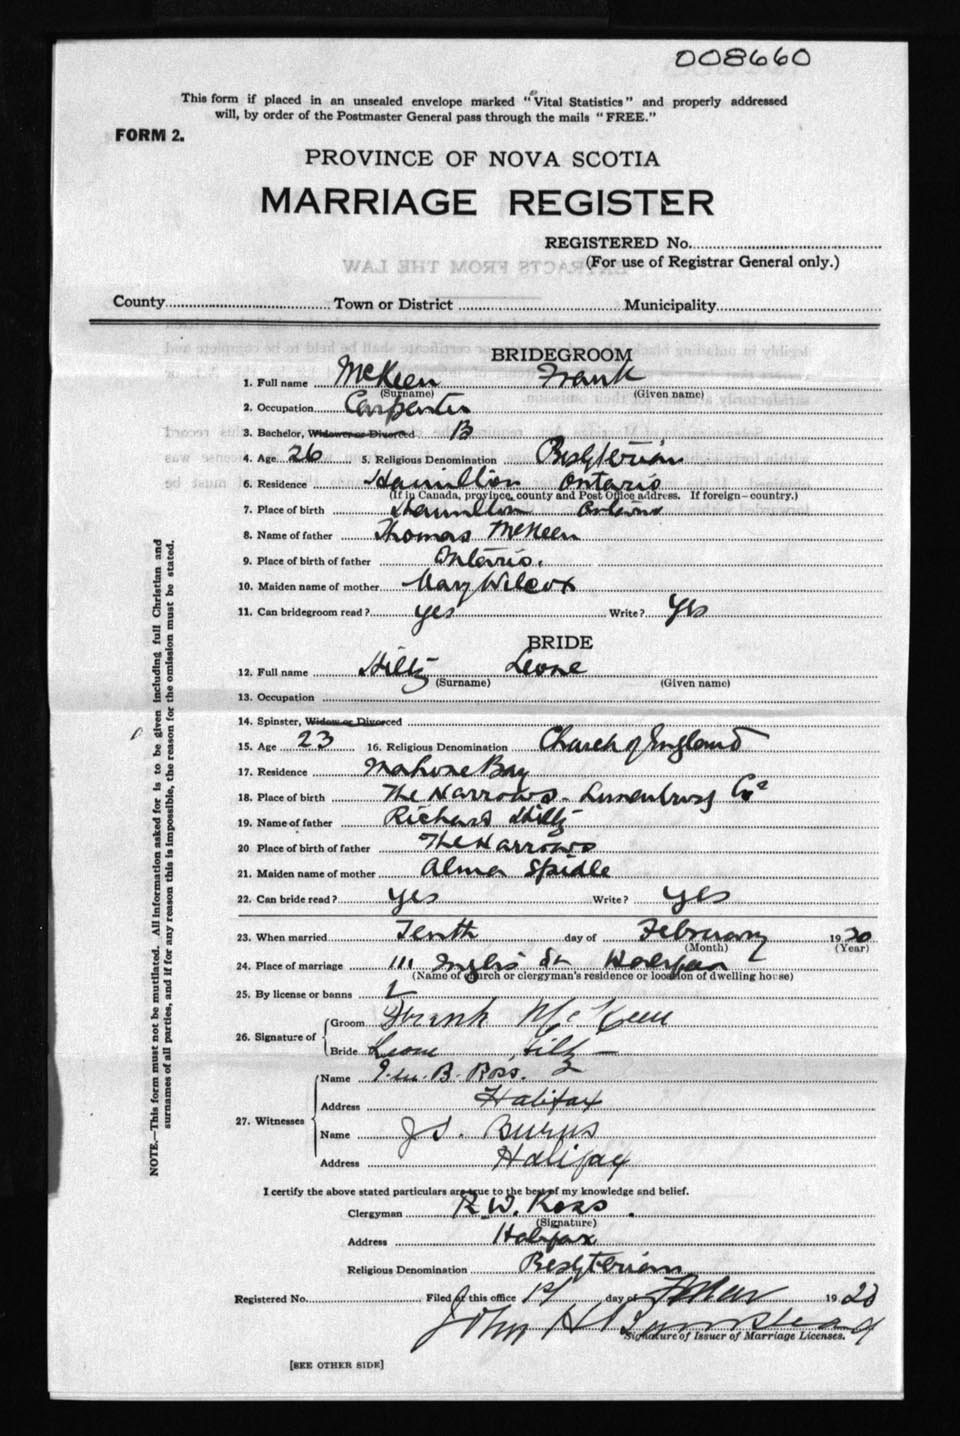 008660
This form if placed in an unsealed envelope marked "Vital Statistics" and properly addressed
will, by order of the Postmaster General pass through the mails "FREE."
FORM 2.
PROVINCE OF NOVA SCOTIA
MARRIAGE REGISTER
REGISTERED No.
(For use of Registrar General only.)
EXTRACTS FROM THE LAW
County Town or District Municipality
BRIDEGROOM
1. Full name McKeen Frank
(Surname) (Given name)
2. Occupation Carpenter
3. Bachelor, Widower or Divorced B
4. Age 26 5. Religious Denomination Presbyterian
6. Residence Hamilton Ontario
(If in Canada, province, county and Post Office address. If foreign—country.)
7. Place of birth Hamilton Ontario
8. Name of father Thomas McKeen
9. Place of birth of father Ontario.
10. Maiden name of mother Mary Wilcox
11. Can bridegroom read? yes Write? yes
BRIDE
12. Full name Hiltz Leone
(Surname) (Given name)
13. Occupation
14. Spinster, Widow or Divorced
15. Age 23 16. Religious Denomination Church of England
17. Residence Mahone Bay
18. Place of birth The Narrows - Lunenburg Co
19. Name of father Richard Hiltz
20 Place of birth of father The Narrows
21. Maiden name of mother Alma Spidle
22. Can bride read? yes Write? yes
23. When married Tenth day of February 1920
(Month) (Year)
24. Place of marriage 111 Inglis St Halifax
(Name of church or clergyman's residence or location of dwelling house)
25. By license or banns L
26. Signature of Groom Frank McKeen
Bride Leone Hiltz
27. Witnesses Name B. Ross.
Address Halifax
Name J S. Burns
Address Halifax
I certify the above stated particulars are true to the best of my knowledge and belief.
Clergyman R. W. Ross.
(Signature)
Address Halifax
Religious Denomination Presbyterian
Registered No. Filed at this office day of 1920
John H
Signature of Issuer of Marriage Licenses.
[SEE OTHER SIDE]
NOTE.—This form must not be mutilated. All information asked for is to be given including full Christian and
surnames of all parties, and if for any reason this is impossible, the reason for the omission must be stated.